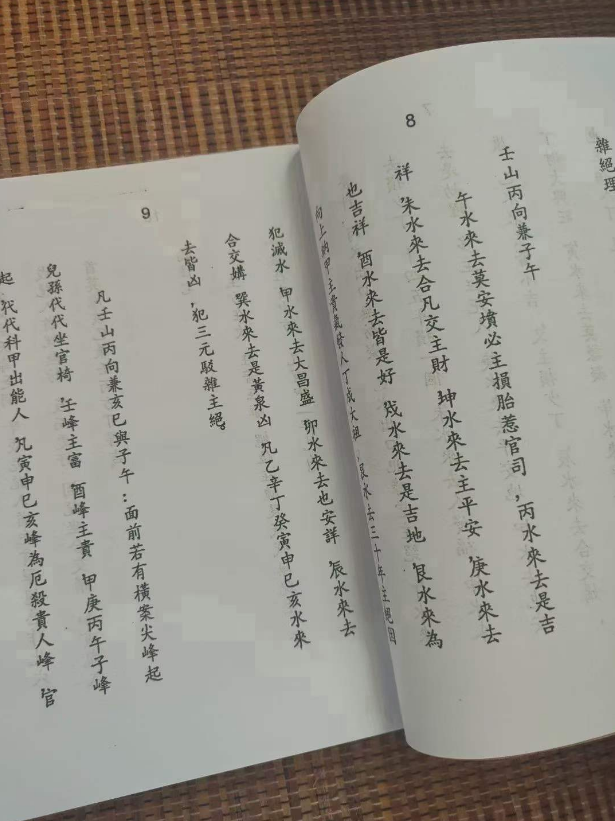 8
雜絕理
壬山丙向兼子午
午水來去莫安墳必主損胎惹官司，丙水來去是吉
祥 朱水來去合凡交主財 坤水來去主平安 庚水來去
也吉祥 酉水來去皆是好 戌水來去是吉地 艮水來為
向上納甲主貴氣發人丁成大坦，艮水去三十年主絕因
9
犯滅水 甲水來去大昌盛 卯水來去也安詳 辰水來去
合交媾 巽水來去是黃泉凶 凡乙辛丁癸寅申巳亥水來
去皆凶，犯三元駁雜主絕。
凡壬山丙向兼亥巳與子午：面前若有橫案尖峰起
兒孫代代坐官椅 壬峰主富 酉峰主貴 甲庚丙午子峰
起 代代科甲出能人 凡寅申巳亥峰為厄殺貴人峰 官